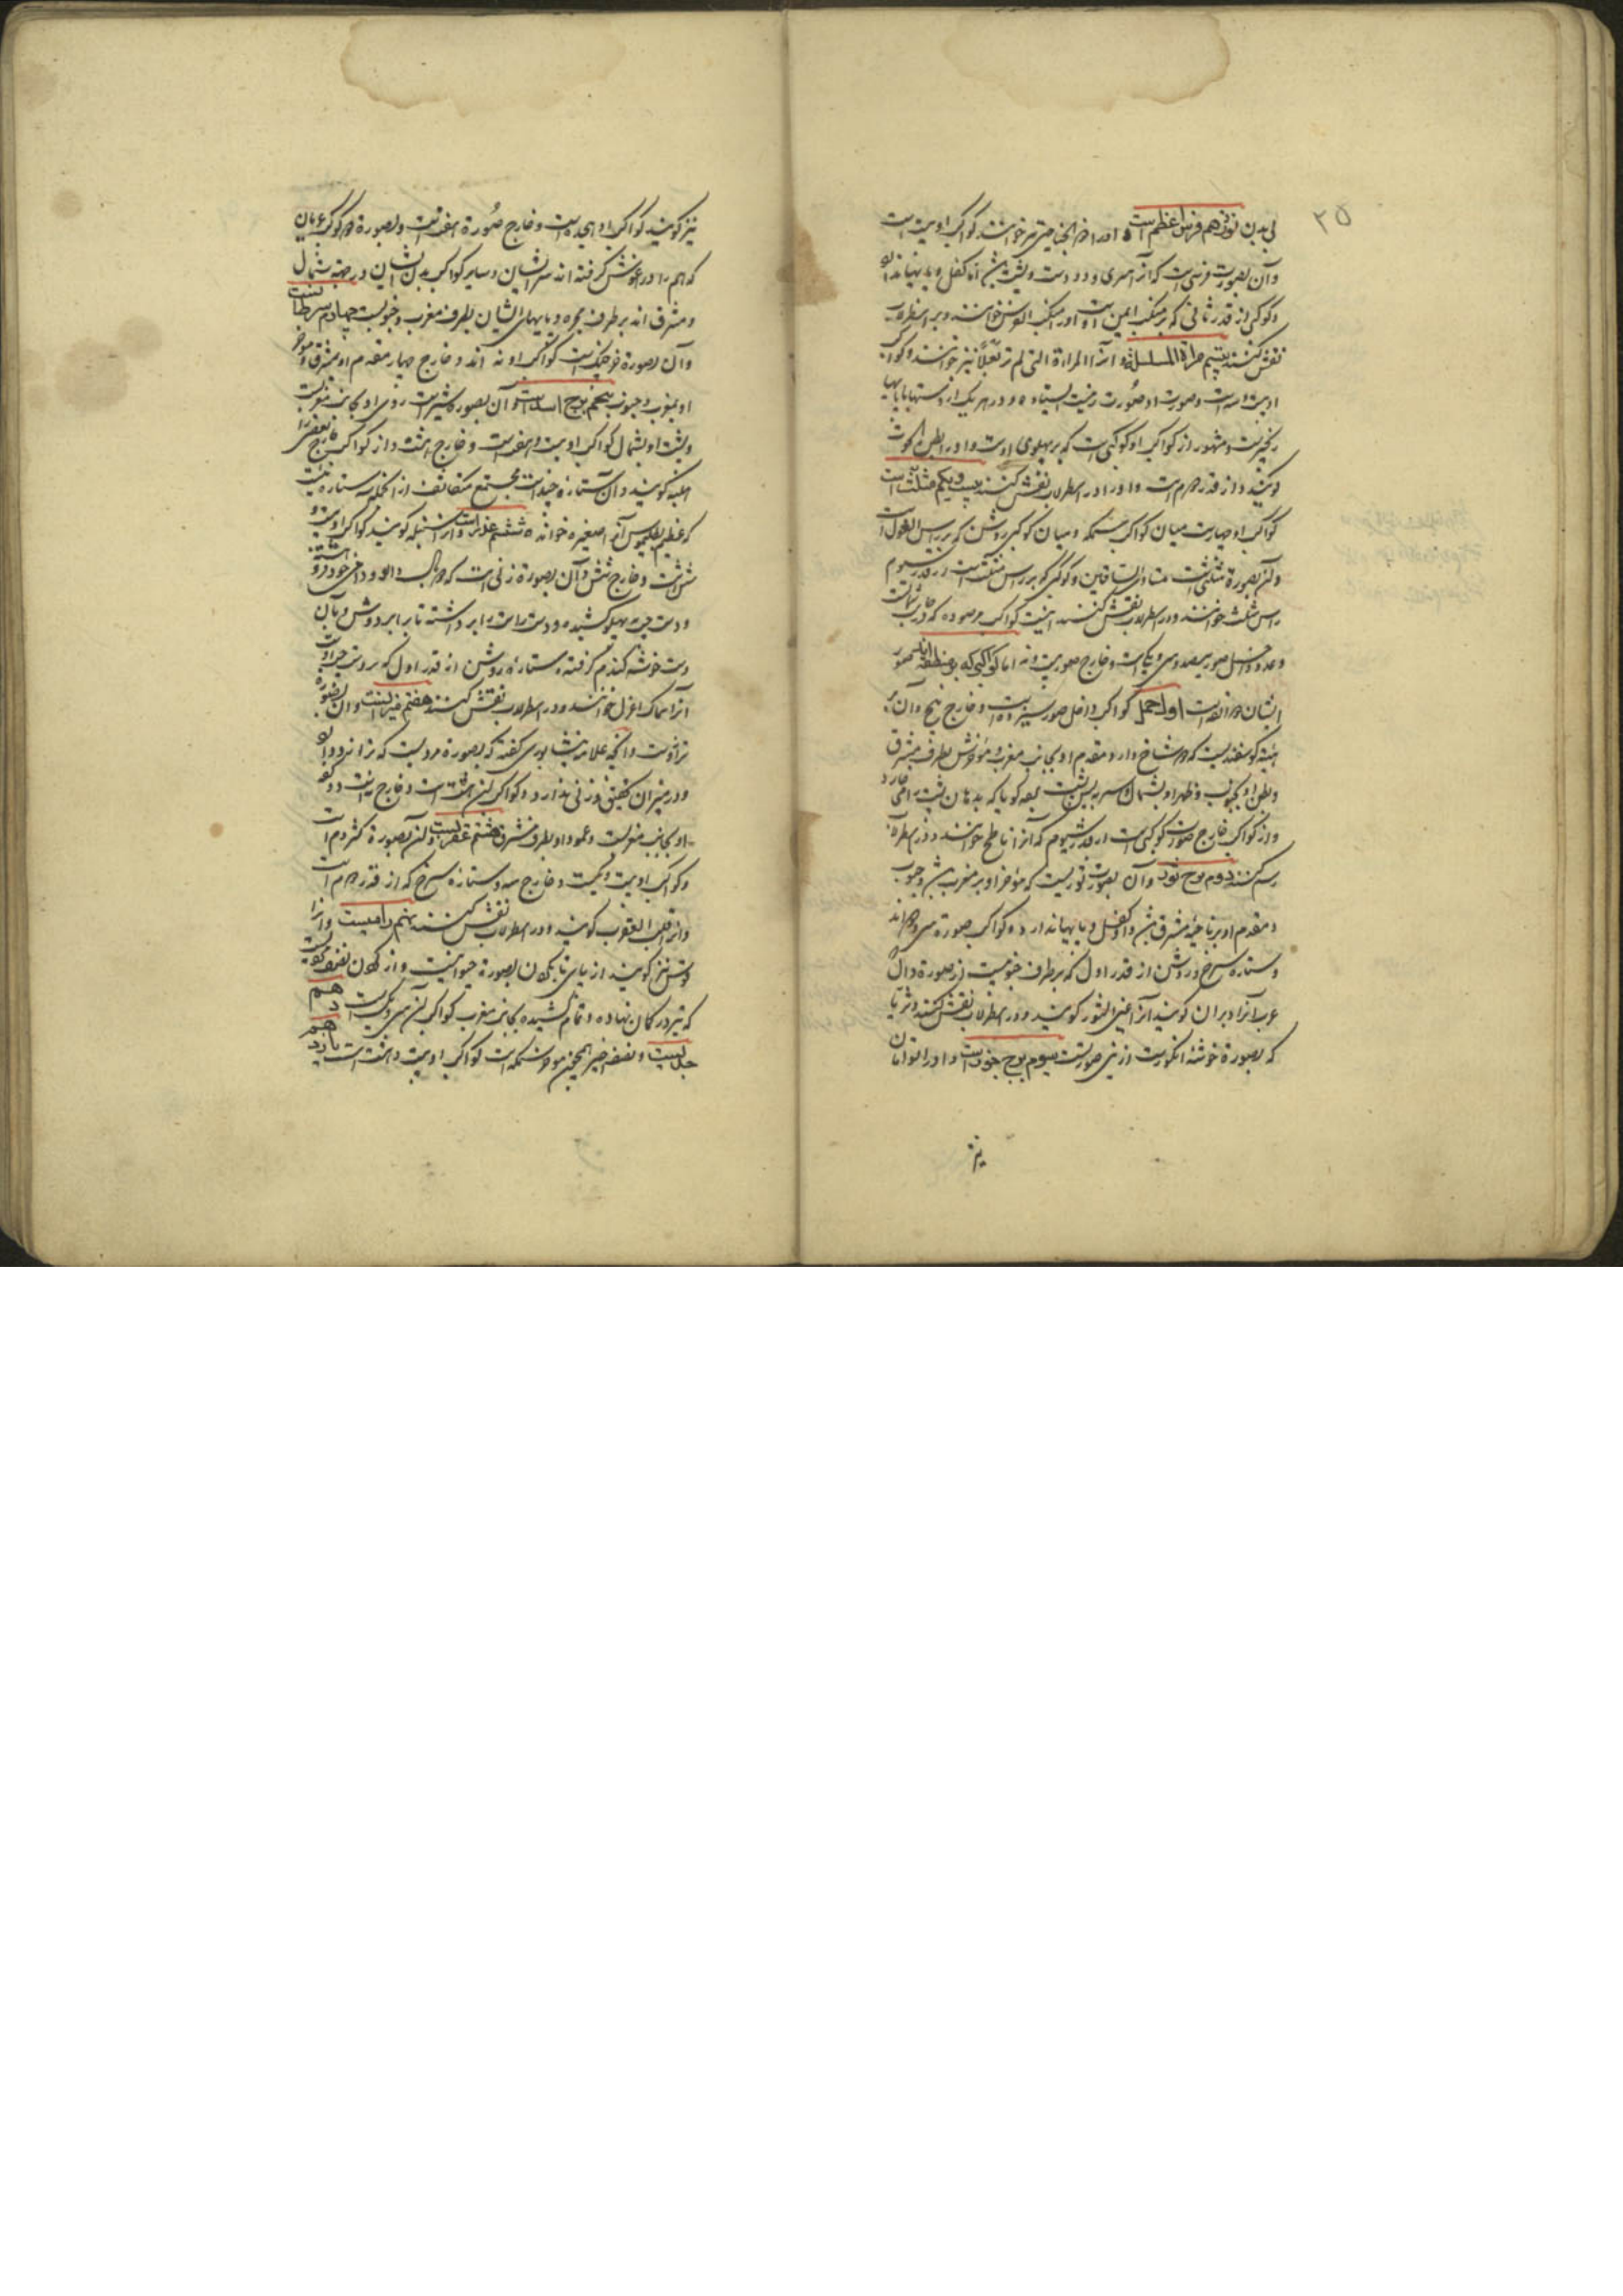 ۲۵
بی بدن نوزدهم فرس اعظم است و او را ذو الجناحین نیز خوانند کواکب او بیست است
و آن بصورت فرسیست که او را سری و دو دست و پشت است اما کفل و پایها ندارد
و کوکبی از قدر ثانی که بر منکب ایمن اوست او را منکب الفرس خوانند و بر اسطرلاب
نقش کنند بیستم مراة المسلسله و آنرا المراة التی لم تر بعلا نیز خوانند و کواکب
او بیست و سه است و صورت او صورت زنیست ایستاده و در هر یک از دستها یا پایها
زنجیریست و مشهور از کواکب او کوکبی است که بر پهلوی اوست و او را بطن الحوت
گویند و از قدر دوم است و او را در اسطرلاب نقش کنند بیست و یکم مثلث است
کواکب او چهارست میان کواکب سمکه و میان کوکبی روشن که بر راس الغول است
و آن بصورة مثلثی است متساوی الساقین و کوکبی که بر راس مثلثست در قدر سیوم
راس مثلث خوانند و در اسطرلاب نقش کنند اینست کواکب مرصوده که در جانب شمالست
و عدد داخل صور سیصد و سی و یک است و خارج صور بیست و نه اما کواکبی که بر منطقه اند صور
ایشان دوازدهست اول حمل کواکب داخل صور سیزده است و خارج پنج و آن بر
هیئة گوسفندیست که دو شاخ دارد مقدم او بجانب مغرب و موخرش بطرف مشرق
و بطن او بجنوب و ظهر او بشمال و سر به پس پشت
و از کواکب خارج صورت کوکبی است از قدر سیوم که آنرا ناطح خوانند و در اسطرلاب
رسم کنند دوم برج ثور و آن بصورت ثوریست که موخر او بر مغرب و جنوب
و مقدم او بر ناحیه مشرق و کفل و پایها ندارد و کواکب صورة سی و دو اند
و ستاره سرخ و روشن از قدر اول که بر طرف جنوبیست از صورة دال
عرب آنرا دبران گویند آنرا عین الثور گویند و در اسطرلاب نقش کنند و ثریا
که بصورة خوشه انگورست ازین صورتست سیوم برج جوزاست و او را توامان
نیز
نیز گویند کواکب او هجده است و خارج صورة هفت است و بصورة دو کودک عریان
که هم را در آغوش گرفته اند سر ایشان و سایر کواکب بدن ایشان در جهت شمال
و مشرق اند بر طرف مجره و پایهای ایشان بطرف مغرب و جنوبست چهارم سرطانست
و آن بصورة خرچنگ است کواکب او نه اند و خارج چهار مقدم او بمشرق و موخر
او بمغرب و جنوب پنجم برج اسد است و آن بصورة شیرست روی او بجانب مغربست
و پشت او بشمال کواکب او بیست و هفت است و خارج هشت و از کواکب خارج بعضی را
هلبه گویند و آن ستاره چند است مجتمع متکاثف از آنجمله سه ستاره ایست
که بطلمیوس آنرا صغیره خوانده ششم عذراست و آنرا سنبله گویند کواکب او بیست و
شش است و خارج شش و آن بصورة زنی است که دو بال دارد و دامن خود فرو هشته
و دست چپ به پهلو کشیده و دست راست برداشته تا برابر دوش و بآن
دست خوشه گندم گرفته و ستاره روشن از قدر اول که بر دست چپ اوست
آنرا سماک اعزل خوانند و در اسطرلاب نقش کنند هفتم میزانست و آن بصورة
ترازوست و آنچه علامه نیشابوری گفته که بصورة مردیست که ترازو دارد
و در میزان تحقیق وزنی ندارد و کواکب این هشت است و خارج نه است و دو کفه
او بجانب مغربست و عمود او بطرف مشرق هشتم عقربست و آن بصورة کژدم است
و کواکب او بیست و یکست و خارج سه و ستاره سرخ که از قدر دوم است
و آنرا قلب العقرب گویند و در اسطرلاب نقش کنند نهم رامیست و آنرا
قوس نیز گویند از پای تا بگردن بصورة حیوانیست و از گردن بصورة مردیست
که تیر در کمان نهاده و تمام کشیده بجانب مغرب کواکب آن سی و یک است دهم
جدیست و نصف اخیر همچون موخر سمکه است کواکب او بیست و هشت است یازدهم